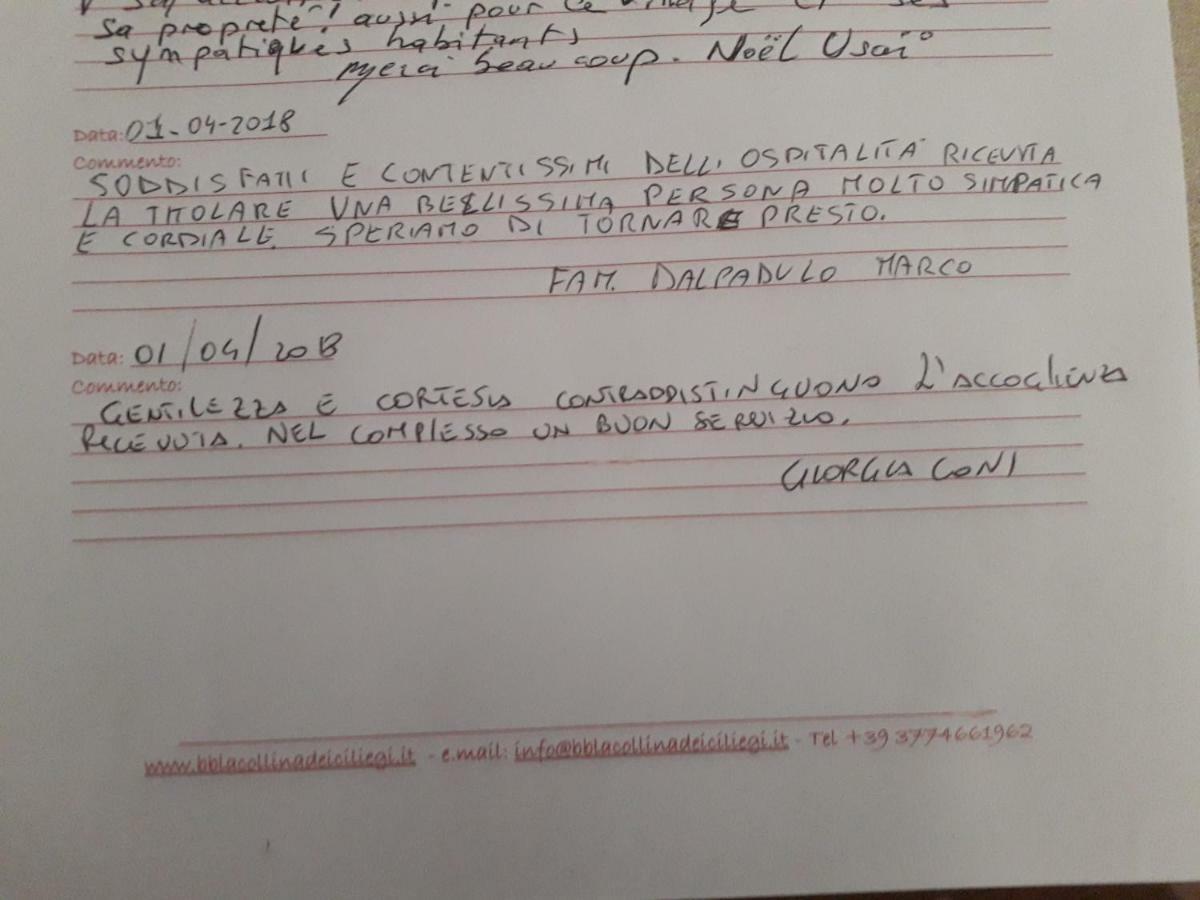 sa propreté! aussi pour ce village et ses
sympatiques habitants
merci beaucoup. Noël Usai
Data: 01-04-2018
Commento:
SODDISFATTI E CONTENTISSIMI DELL'OSPITALITA' RICEVUTA
LA TITOLARE UNA BELLISSIMA PERSONA MOLTO SIMPATICA
E CORDIALE SPERIAMO DI TORNARE PRESTO.
FAM. DALPADULO MARCO
Data: 01/04/2018
Commento:
GENTILEZZA E CORTESIA CONTRADDISTINGUONO L'ACCOGLIENZA
RICEVUTA. NEL COMPLESSO UN BUON SERVIZIO.
GIORGIA CONI
www.bblacollinadeiciliegi.it - e.mail: info@bblacollinadeiciliegi.it - Tel +39 3774661962